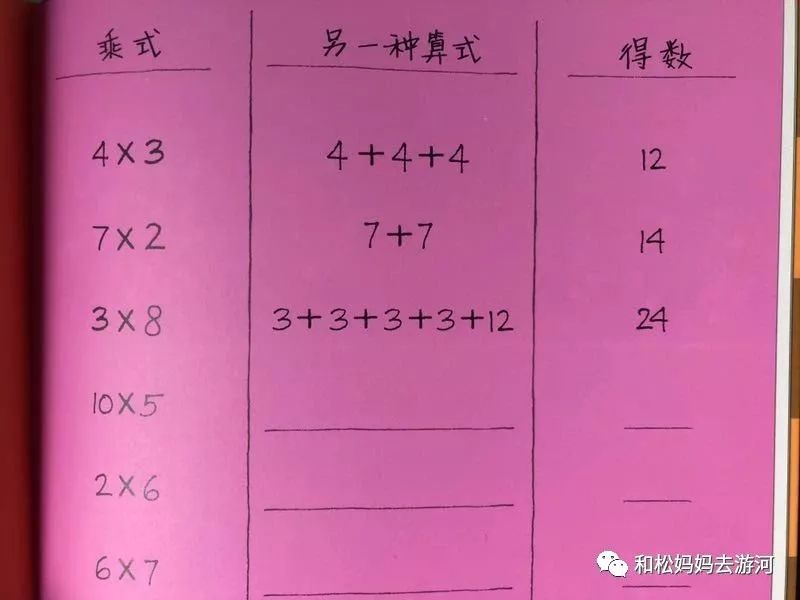 乘式 另一种算式 得数
4×3 4+4+4 12
7×2 7+7 14
3×8 3+3+3+3+12 24
10×5
2×6
6×7
和松妈妈去游河